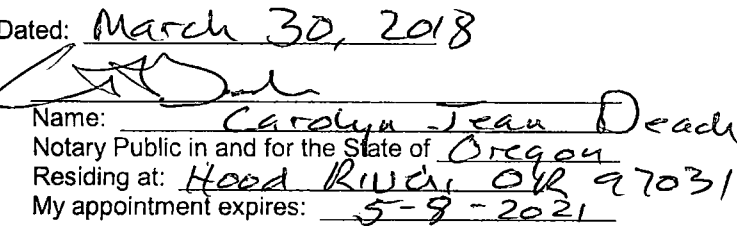 Dated: March 30, 2018
Name: Carolyn Jean Deach
Notary Public in and for the State of Oregon
Residing at: Hood River, OR 97031
My appointment expires: 5-8-2021